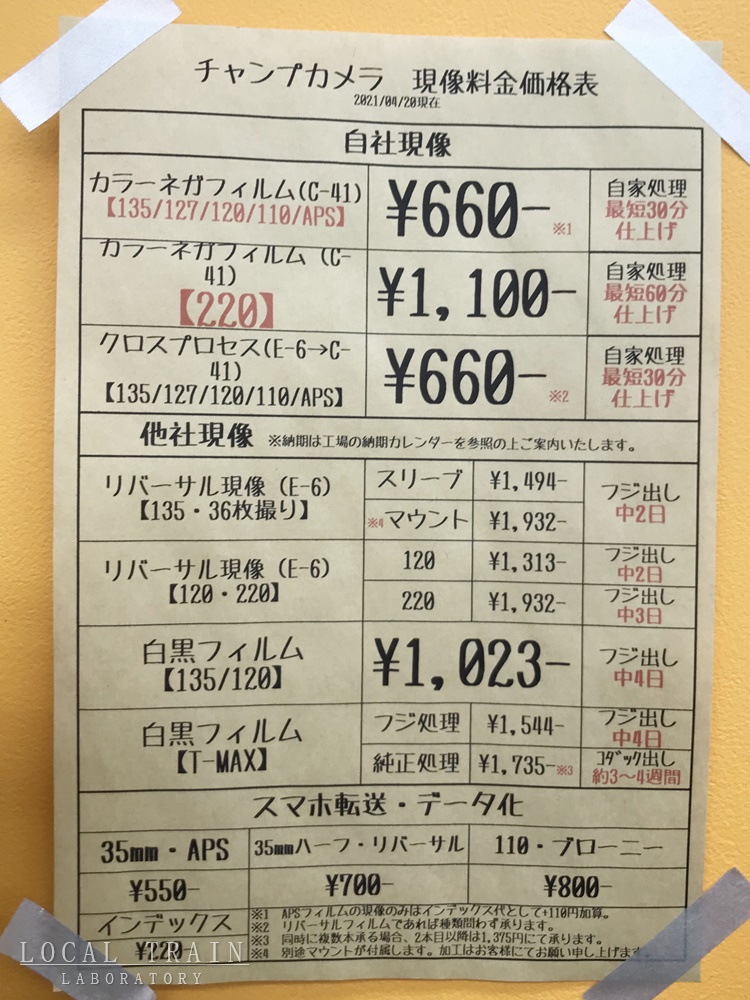 チャンプカメラ 現像料金価格表
2021/04/20現在
自社現像
カラーネガフィルム(C-41)
【135/127/120/110/APS】
¥660-
※1
自家処理
最短30分
仕上げ
カラーネガフィルム (C-
41)
【220】
¥1,100-
自家処理
最短60分
仕上げ
クロスプロセス(E-6→C-
41)
【135/127/120/110/APS】
¥660-
※2
自家処理
最短30分
仕上げ
他社現像 ※納期は工場の納期カレンダーを参照の上ご案内いたします。
リバーサル現像 (E-6)
【135・36枚撮り】
スリーブ
¥1,494-
※4マウント
¥1,932-
フジ出し
中2日
リバーサル現像 (E-6)
【120・220】
120
¥1,313-
フジ出し
中2日
220
¥1,932-
フジ出し
中3日
白黒フィルム
【135/120】
¥1,023-
フジ出し
中4日
白黒フィルム
【T-MAX】
フジ処理
¥1,544-
フジ出し
中4日
純正処理
¥1,735-※3
コダック出し
約3~4週間
スマホ転送・データ化
35mm・APS
35mmハーフ・リバーサル
110・ブローニー
¥550-
¥700-
¥800-
インデックス
¥220-
※1 APSフィルムの現像のみはインデックス代として+110円加算。
※2 リバーサルフィルムであれば種類問わず承ります。
※3 同時に複数本承る場合、2本目以降は1,375円にて承ります。
※4 別途マウントが付属します。加工はお客様にてお願い申し上げます。
LOCAL TRAIN
LABORATORY